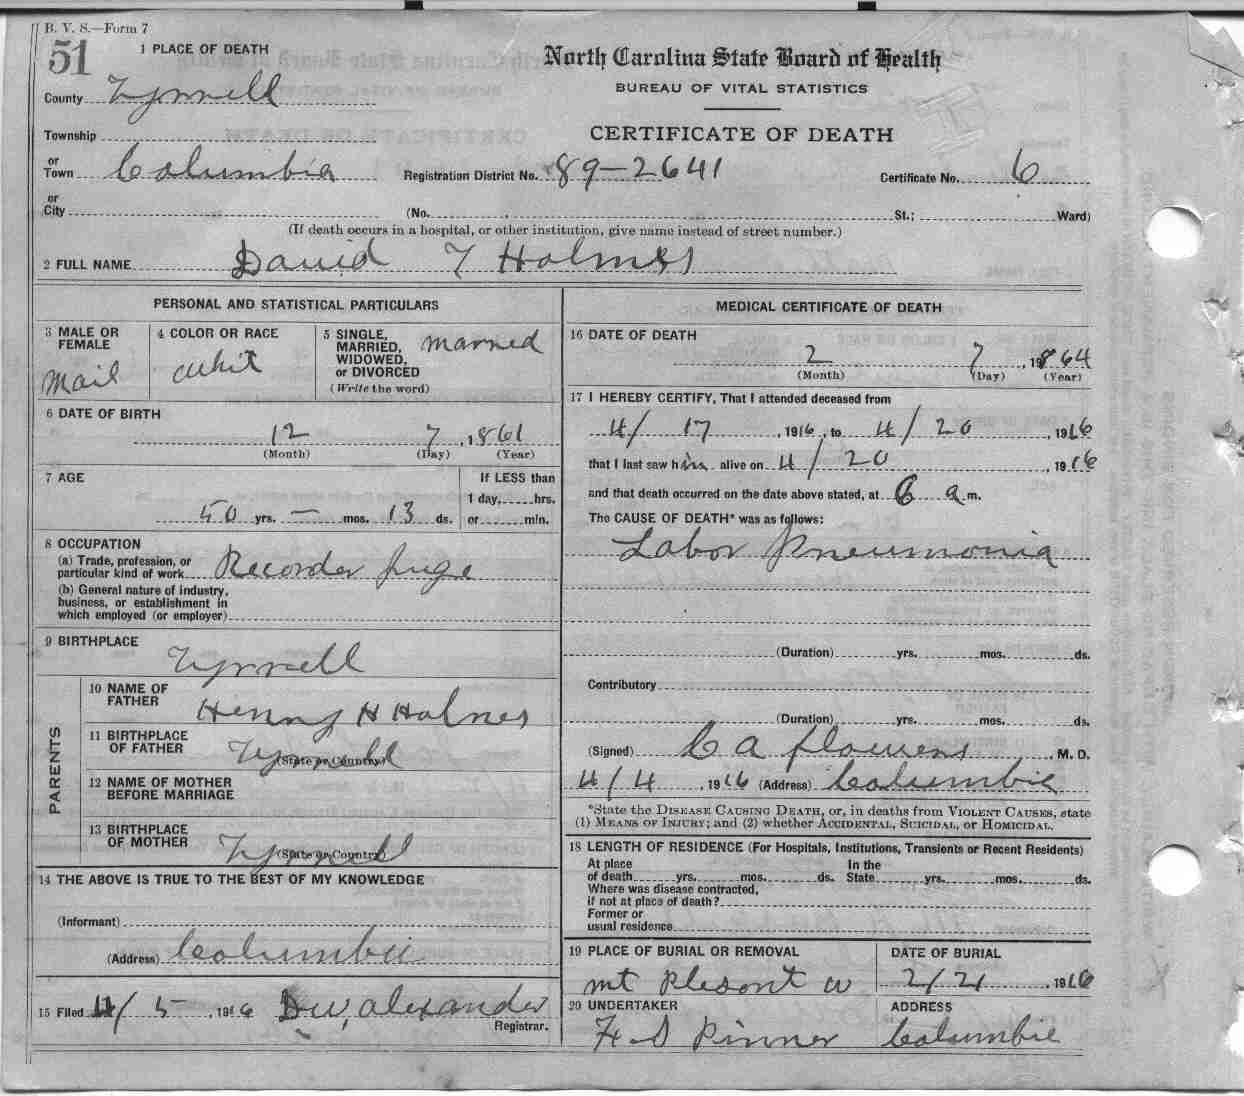 B. V. S.—Form 7
51
1 PLACE OF DEATH
North Carolina State Board of Health
BUREAU OF VITAL STATISTICS
CERTIFICATE OF DEATH
County Tyrrell
Township
or
Town Columbia Registration District No. 89-2641 Certificate No. 6
or
City (No. St.; Ward)
(If death occurs in a hospital, or other institution, give name instead of street number.)
2 FULL NAME David T Holmes
PERSONAL AND STATISTICAL PARTICULARS
3 MALE OR FEMALE mail
4 COLOR OR RACE whit
5 SINGLE, MARRIED, WIDOWED, or DIVORCED married
(Write the word)
6 DATE OF BIRTH
12 7, 1861
(Month) (Day) (Year)
7 AGE If LESS than
1 day, hrs.
50 yrs. — mos. 13 ds. or min.
8 OCCUPATION
(a) Trade, profession, or
particular kind of work Recorder juge
(b) General nature of industry,
business, or establishment in
which employed (or employer)
9 BIRTHPLACE
Tyrrell
PARENTS
10 NAME OF FATHER Henry H Holnes
11 BIRTHPLACE OF FATHER Tyrrell
(State or Country)
12 NAME OF MOTHER BEFORE MARRIAGE
13 BIRTHPLACE OF MOTHER Tyrrell
(State or Country)
14 THE ABOVE IS TRUE TO THE BEST OF MY KNOWLEDGE
(Informant)
(Address) Columbia
15 Filed 4/5, 1916 D W, Alexander
Registrar.
MEDICAL CERTIFICATE OF DEATH
16 DATE OF DEATH
2 7, 1864
(Month) (Day) (Year)
17 I HEREBY CERTIFY, That I attended deceased from
4/ 17, 1916, to 4/20, 1916
that I last saw him alive on 4/20, 1916
and that death occurred on the date above stated, at 6 a m.
The CAUSE OF DEATH* was as follows:
Labor Pneumonia
(Duration) yrs. mos. ds.
Contributory
(Duration) yrs. mos. ds.
(Signed) C A flowers, M. D.
4/4, 1916 (Address) Columbie
*State the DISEASE CAUSING DEATH, or, in deaths from VIOLENT CAUSES, state
(1) MEANS OF INJURY; and (2) whether ACCIDENTAL, SUICIDAL, or HOMICIDAL.
18 LENGTH OF RESIDENCE (For Hospitals, Institutions, Transients or Recent Residents)
At place In the
of death yrs. mos. ds. State yrs. mos. ds.
Where was disease contracted,
if not at place of death?
Former or
usual residence
19 PLACE OF BURIAL OR REMOVAL
mt Plesont
DATE OF BURIAL
2/21 1916
20 UNDERTAKER
H S Pinner
ADDRESS
Columbie